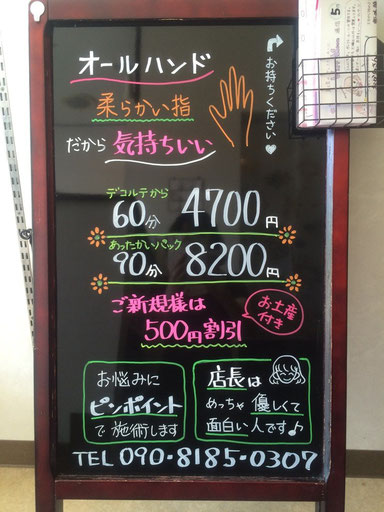 オールハンド
柔らかい指
だから 気持ちいい
お持ちください♥
デコルテから
60分 4700円
あったかいパック
90分 8200円
ご新規様は
500円割引
お土産
付き
お悩みに
ピンポイント
で施術します
店長は
めっちゃ 優しくて
面白い人です♪
TEL 090-8185-0307